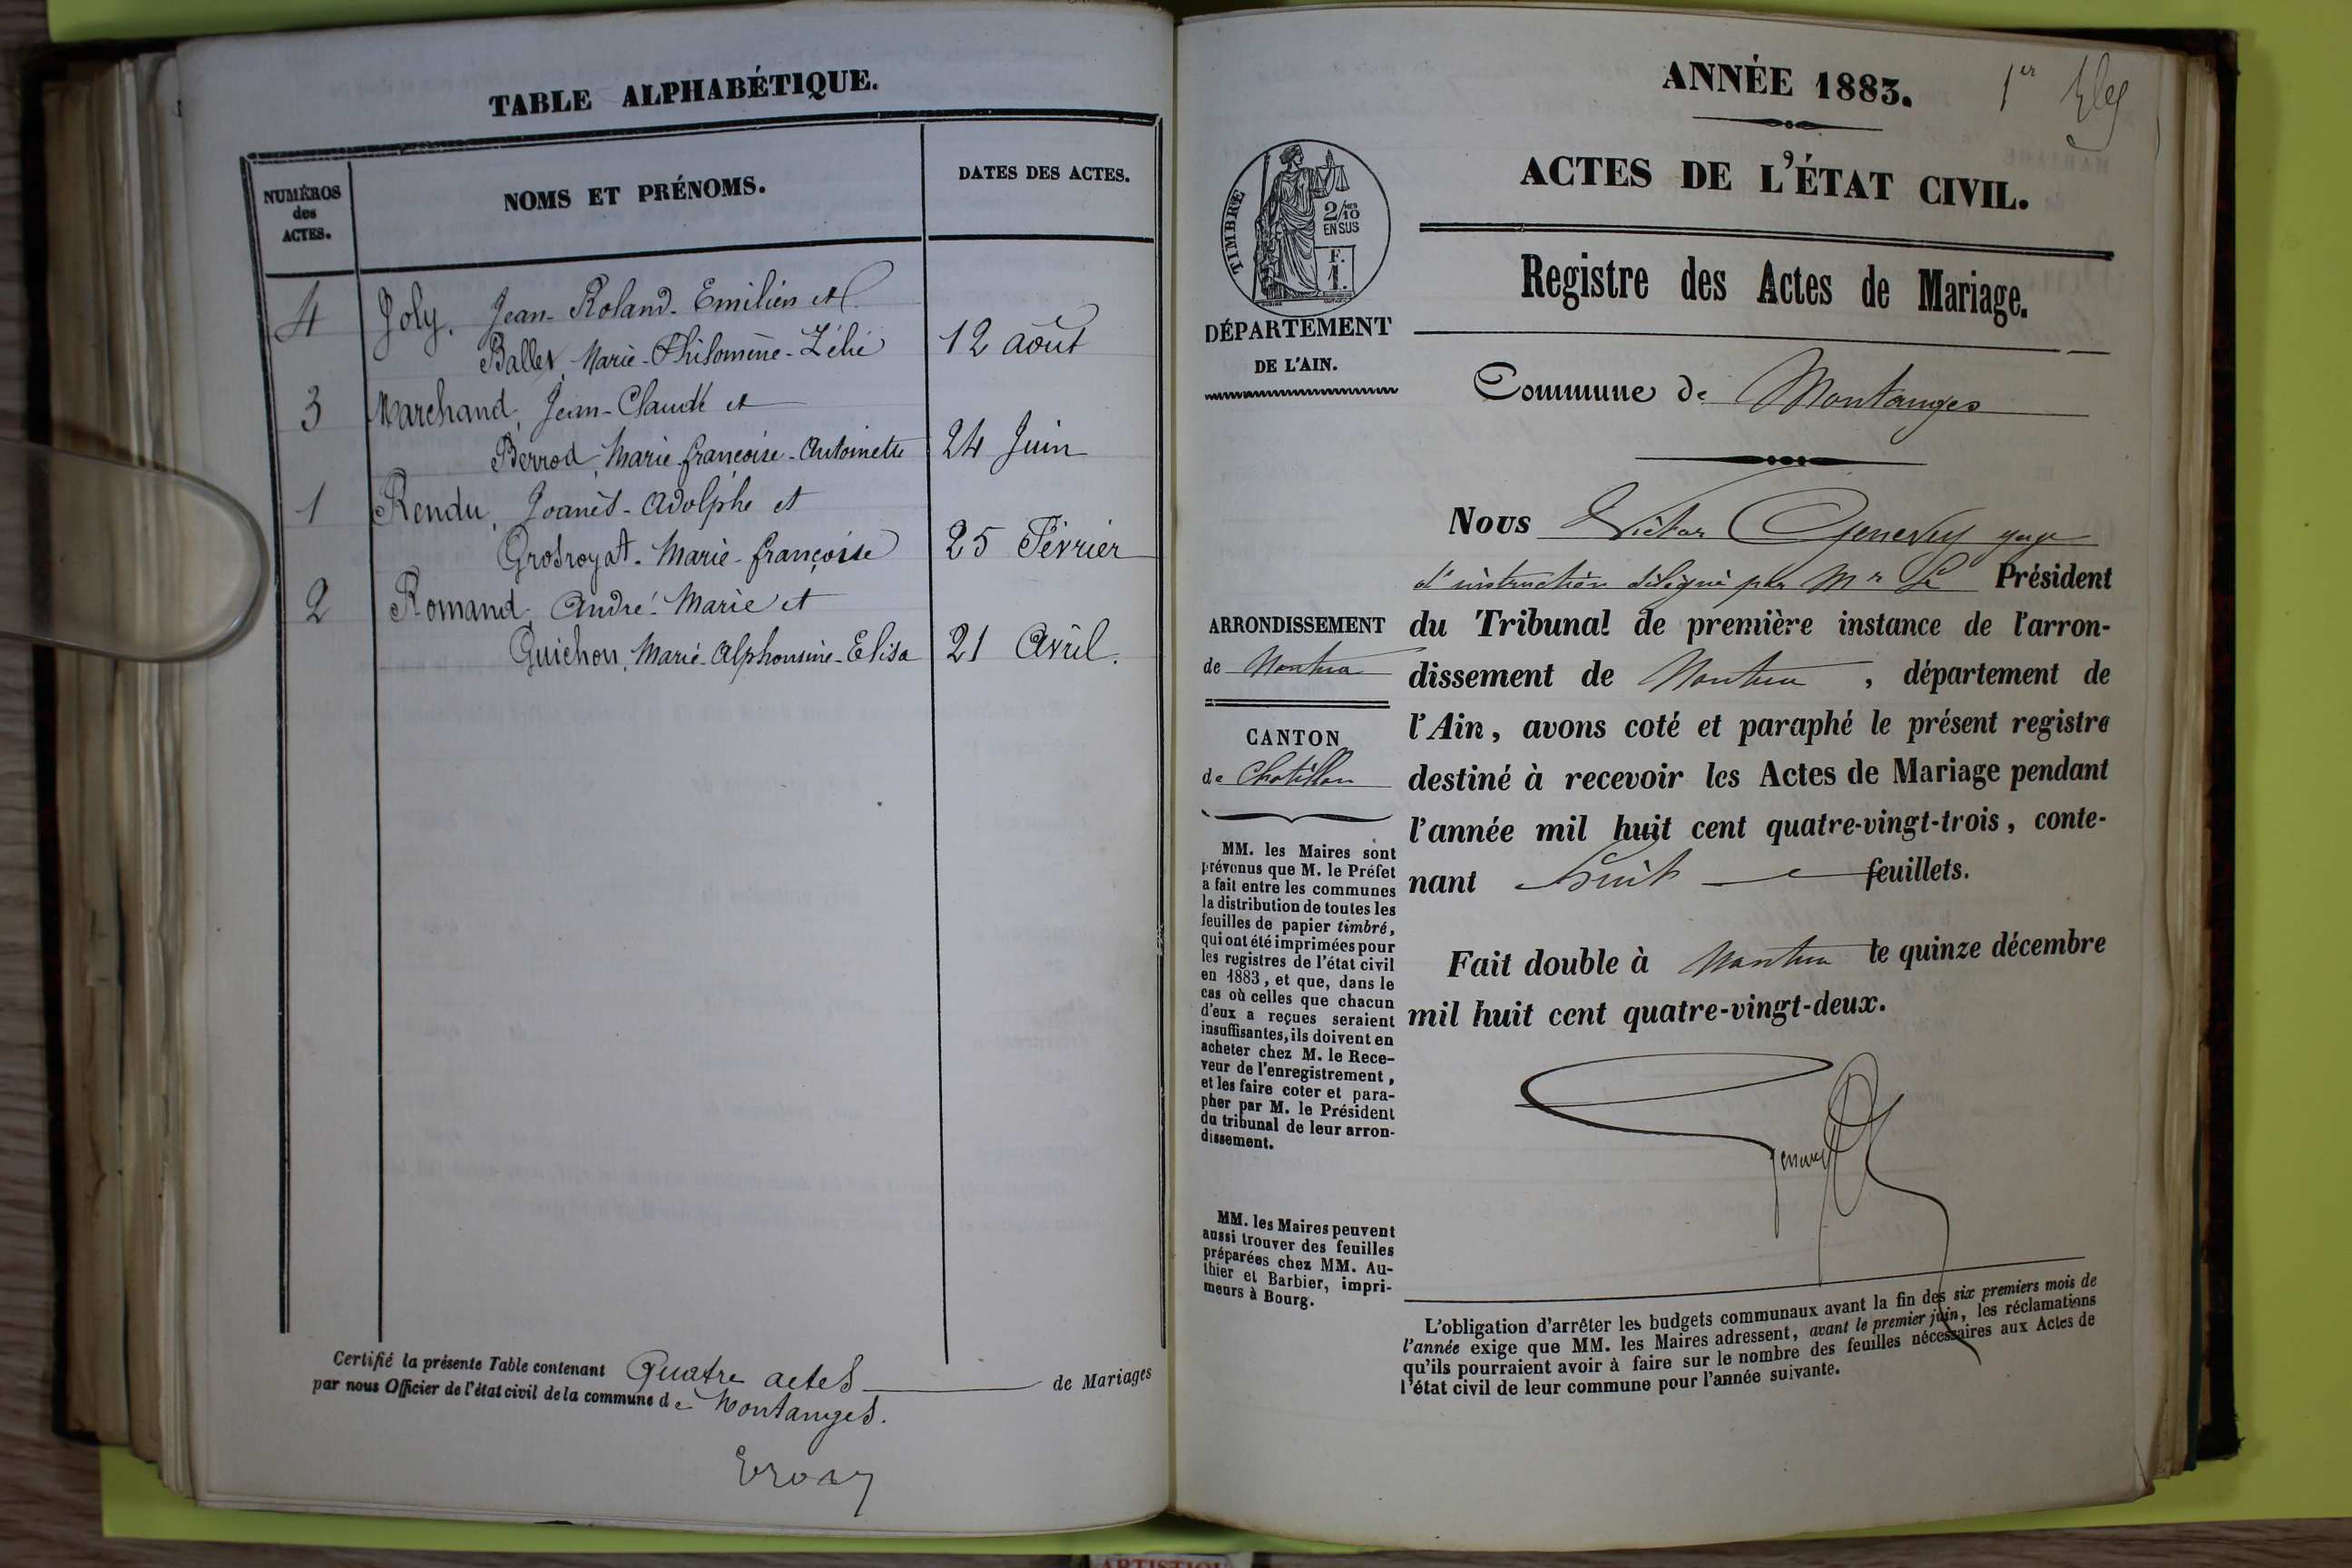 TABLE ALPHABÉTIQUE.
NUMÉROS
des
ACTES.
NOMS ET PRÉNOMS.
DATES DES ACTES.
4 Joly, Jean-Roland-Emilien et
Ballet, Marie-Philomène-Zélié 12 août
3 Marchand, Jean-Claude et
Berrod, Marie françoise-Antoinette 24 Juin
1 Rendu, Joanès-Adolphe et
Grosroyat. Marie-françoise 25 Février
2 Romand, André-Marie et
Guichon, Marie-Alphonsine-Elisa 21 Avril.
Certifié la présente Table contenant Quatre actes de Mariages
par nous Officier de l'état civil de la commune de Montanges.
ANNÉE 1883.
1er
ACTES DE L'ÉTAT CIVIL.
Registre des Actes de Mariage.
TIMBRE
2/10
EN SUS
F.
1.
DÉPARTEMENT
DE L'AIN.
Commune de Montanges
Nous Victor Genevey juge
d'instruction délégué par Mr Le Président
du Tribunal de première instance de l'arron-
dissement de Nantua, département de
l'Ain, avons coté et paraphé le présent registre
destiné à recevoir les Actes de Mariage pendant
l'année mil huit cent quatre-vingt-trois, conte-
nant huit feuillets.
Fait double à Nantua le quinze décembre
mil huit cent quatre-vingt-deux.
Genevey
ARRONDISSEMENT
de Nantua
CANTON
de Chatillon
MM. les Maires sont
prévenus que M. le Préfet
a fait entre les communes
la distribution de toutes les
feuilles de papier timbré,
qui ont été imprimées pour
les registres de l'état civil
en 1883, et que, dans le
cas où celles que chacun
d'eux a reçues seraient
insuffisantes, ils doivent en
acheter chez M. le Rece-
veur de l'enregistrement,
et les faire coter et para-
pher par M. le Président
du tribunal de leur arron-
dissement.
MM. les Maires peuvent
aussi trouver des feuilles
préparées chez MM. Au-
thier et Barbier, impri-
meurs à Bourg.
L'obligation d'arrêter les budgets communaux avant la fin des six premiers mois de
l'année exige que MM. les Maires adressent, avant le premier juin, les réclamations
qu'ils pourraient avoir à faire sur le nombre des feuilles nécessaires aux Actes de
l'état civil de leur commune pour l'année suivante.